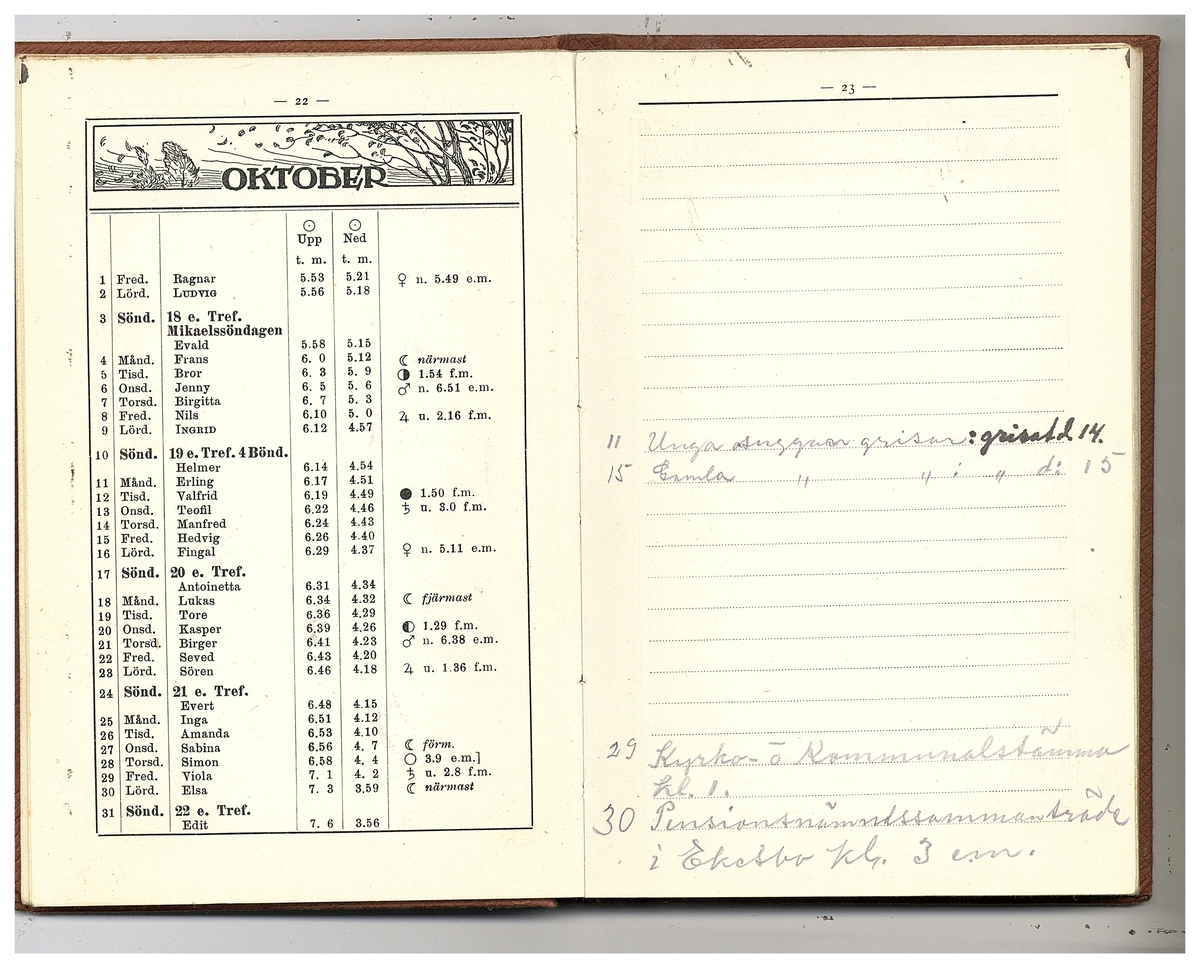 — 22 —
OKTOBER
☉ ☉
Upp Ned
t. m. t. m.
1 Fred. Ragnar 5.53 5.21 ♀ n. 5.49 e.m.
2 Lörd. LUDVIG 5.56 5.18
3 Sönd. 18 e. Tref.
Mikaelssöndagen
Evald 5.58 5.15
4 Månd. Frans 6. 0 5.12 ☾ närmast
5 Tisd. Bror 6. 3 5. 9 ◑ 1.54 f.m.
6 Onsd. Jenny 6. 5 5. 6 ♂ n. 6.51 e.m.
7 Torsd. Birgitta 6. 7 5. 3
8 Fred. Nils 6.10 5. 0 ♃ u. 2.16 f.m.
9 Lörd. INGRID 6.12 4.57
10 Sönd. 19 e. Tref. 4 Bönd.
Helmer 6.14 4.54
11 Månd. Erling 6.17 4.51
12 Tisd. Valfrid 6.19 4.49 ● 1.50 f.m.
13 Onsd. Teofil 6.22 4.46 ♄ u. 3.0 f.m.
14 Torsd. Manfred 6.24 4.43
15 Fred. Hedvig 6.26 4.40
16 Lörd. Fingal 6.29 4.37 ♀ n. 5.11 e.m.
17 Sönd. 20 e. Tref.
Antoinetta 6.31 4.34
18 Månd. Lukas 6.34 4.32 ☾ fjärmast
19 Tisd. Tore 6.36 4.29
20 Onsd. Kasper 6.39 4.26 ◐ 1.29 f.m.
21 Torsd. Birger 6.41 4.23 ♂ n. 6.38 e.m.
22 Fred. Seved 6.43 4.20
23 Lörd. Sören 6.46 4.18 ♃ u. 1.36 f.m.
24 Sönd. 21 e. Tref.
Evert 6.48 4.15
25 Månd. Inga 6.51 4.12
26 Tisd. Amanda 6.53 4.10
27 Onsd. Sabina 6.56 4. 7 ☾ förm.
28 Torsd. Simon 6.58 4. 4 ○ 3.9 e.m.]
29 Fred. Viola 7. 1 4. 2 ♄ u. 2.8 f.m.
30 Lörd. Elsa 7. 3 3.59 ☾ närmast
31 Sönd. 22 e. Tref.
Edit 7. 6 3.56
— 23 —
11 Unga suggan grisar: grisat d 14.
15 Gamla " " : " d: 15
29 Kyrko- o Kommunalstämma
kl. 1.
30 Pensionsnämndssammanträde
i Ekebo kl. 3 em.